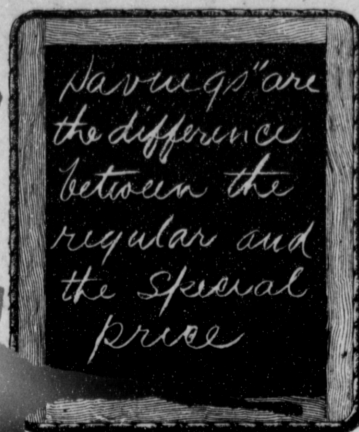 Savings" are
the difference
between the
regular and
the special
price